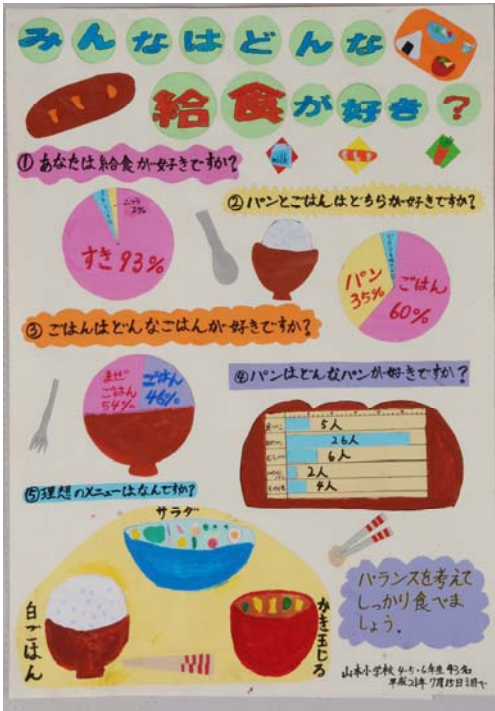 みんなはどんな
給食が好き?
① あなたは給食が好きですか?
すき 93%
② パンとごはんはどちらが好きですか?
パン
35%
ごはん
60%
③ ごはんはどんなごはんが好きですか?
まぜ
ごはん
54%
ごはん
46%
④ パンはどんなパンが好きですか?
5人
26人
6人
2人
4人
⑤ 理想のメニューはなんですか?
サラダ
白ごはん
かき玉じる
バランスを考えて
しっかり食べま
しょう。
山本小学校 4・5・6年生 43名